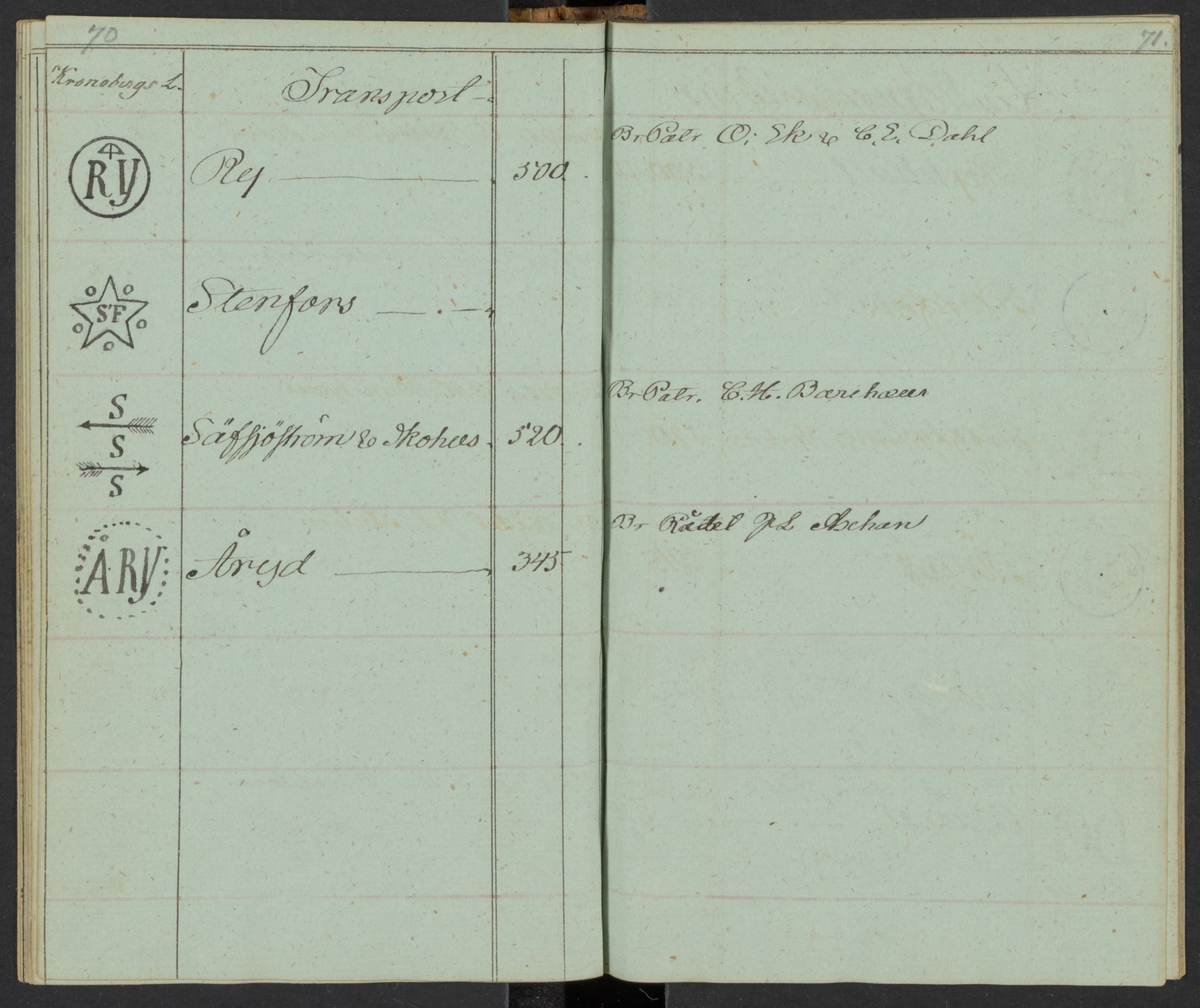 70
71.
Kronobergs L.
Transport
Br Patr. O; Ek & C. E. Dahl
RY
Ry 500.
SF
Stenfors
Br Patr. C. H.
S
S
S
Säfsjöström & Skohus 520.
Br Rådel P L Aschan
ÅRY
Åryd 345